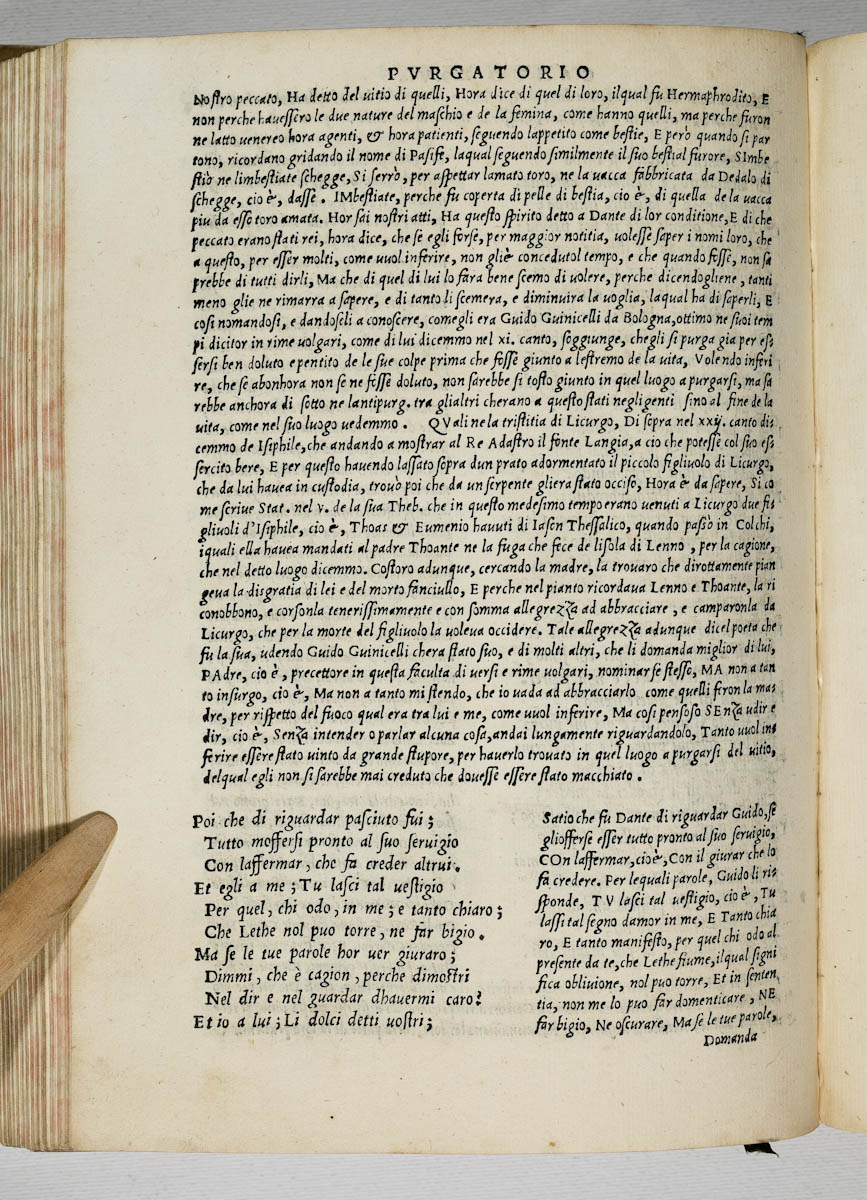 PVRGATORIO
Nostro peccato, Ha detto del uitio di quelli, Hora dice di quel di loro, ilqual fu Hermaphrodito, E
non perche hauessero le due nature del maschio e de la femina, come hanno quelli, ma perche furon
ne latto venereo hora agenti, & hora patienti, seguendo lappetito come bestie, E però quando si par
tono, ricordano gridando il nome di Pasife, laqual seguendo similmente il suo bestial furore, SImbe
stiò ne limbestiate schegge, Si serrò, per aspettar lamato toro, ne la uacca fabbricata da Dedalo di
schegge, cio è, dasse. IMbestiate, perche fu coperta di pelle di bestia, cio è, di quella de la uacca
piu da esso toro amata. Hor sai nostri atti, Ha questo spirito detto a Dante di lor conditione, E di che
peccato erano stati rei, hora dice, che se egli forse, per maggior notitia, uolesse saper i nomi loro, che
a questo, per esser molti, come uuol inferire, non gliè conceduto l tempo, e che quando fosse, non sa
prebbe di tutti dirli, Ma che di quel di lui lo fara bene scemo di uolere, perche dicendogliene, tanti
meno glie ne rimarra a sapere, e di tanto li scemera, e diminuira la uoglia, laqual ha di saperli, E
cosi nomandosi, e dandoseli a conoscere, comegli era Guido Guinicelli da Bologna, ottimo ne suoi tem
pi dicitor in rime uolgari, come di lui dicemmo nel xi. canto, soggiunge, chegli si purga gia per es-
sersi ben doluto e pentito de le sue colpe prima che fosse giunto a lestremo de la uita, Volendo inferi
re, che se abonhora non se ne fosse doluto, non sarebbe si tosto giunto in quel luogo a purgarsi, ma sa
rebbe anchora di sotto ne lantipurg. tra glialtri cherano a questo stati negligenti sino al fine de la
uita, come nel suo luogo uedemmo. QVali ne la tristitia di Licurgo, Di sopra nel xxij. canto di-
cemmo de Isiphile, che andando a mostrar al Re Adastro il fonte Langia, a cio che potesse col suo es-
sercito bere, E per questo hauendo lassato sopra dun prato adormentato il piccolo figliuolo di Licurgo,
che da lui hauea in custodia, trouò poi che da un serpente gliera stato occiso, Hora è da sapere, Si co
me scriue Stat. nel v. de la sua Theb. che in questo medesimo tempo erano uenuti a Licurgo due fi-
gliuoli d'Isiphile, cio è, Thoas & Eumenio hauuti di Iason Thessalico, quando passò in Colchi,
iquali ella hauea mandati al padre Thoante ne la fuga che fece de lisola di Lenno, per la cagione,
che nel detto luogo dicemmo. Costoro adunque, cercando la madre, la trouaro che dirottamente pian
geua la disgratia di lei e del morto fanciullo, E perche nel pianto ricordaua Lenno e Thoante, la ri
conobbono, e corsonla tenerissimamente e con somma allegrezza ad abbracciare, e camparonla da
Licurgo, che per la morte del figliuolo la uoleua occidere. Tale allegrezza adunque dice l poeta che
fu la sua, udendo Guido Guinicelli chera stato suo, e di molti altri, che li domanda miglior di lui,
PAdre, cio è, precettore in questa faculta di uersi e rime uolgari, nominar se stesso, MA non a tan
to insurgo, cio è, Ma non a tanto mi stendo, che io uada ad abbracciarlo come quelli feron la ma-
dre, per rispetto del fuoco qual era tra lui e me, come uuol inferire, Ma cosi pensoso SEnza udir e
dir, cio è, Senza intender o parlar alcuna cosa, andai lungamente riguardandolo, Tanto uuol in-
ferire essere stato uinto da grande stupore, per hauerlo trouato in quel luogo a purgarsi del uitio,
delqual egli non si sarebbe mai creduto che douesse essere stato macchiato.
Poi che di riguardar pasciuto fui;
Tutto moffersi pronto al suo seruigio
Con laffermar, che fa creder altrui.
Et egli a me; Tu lasci tal uestigio
Per quel, chi odo, in me; e tanto chiaro;
Che Lethe nol puo torre, ne far bigio.
Ma se le tue parole hor uer giuraro;
Dimmi, che è cagion, perche dimostri
Nel dir e nel guardar dhauermi caro?
Et io a lui; Li dolci detti uostri;
Satio che fu Dante di riguardar Guido, se
glioffersse esser tutto pronto al suo seruigio,
COn laffermar, cio è, Con il giurar che lo
fa credere. Per lequali parole, Guido li ri-
sponde, TV lasci tal uestigio, cio è, Tu
lassi tal segno damor in me, E Tanto chia
ro, E tanto manifesto, per quel chi odo al
presente da te, che Lethe fiume, ilqual signi
fica obliuione, nol puo torre, Et in senten
tia, non me lo puo far domenticare, NE
far bigio, Ne oscurare, Ma se le tue parole,
Domanda